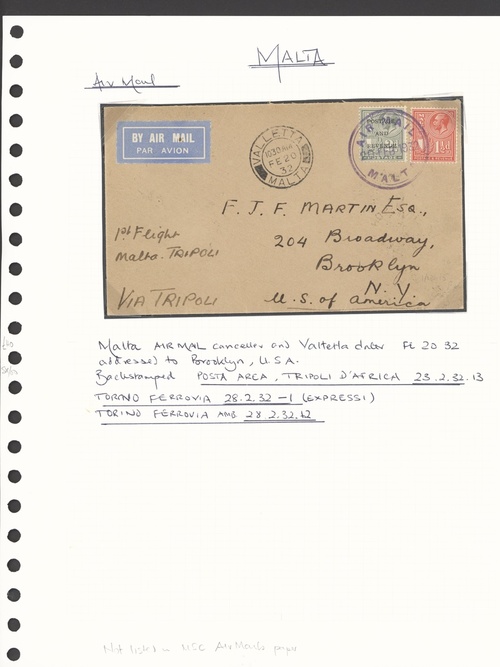 MALTA
Air Mail
BY AIR MAIL
PAR AVION
VALLETTA
1030 AM
FE 20
32
MALTA
POSTAGE
AND
REVENUE
POSTAGE
AIR MAIL
MALTA
1½d
F. J. F. MARTIN ESQ.,
204 Broadway,
Brooklyn
N.Y
U.S. of America
1st Flight
Malta. TRIPOLI
VIA TRIPOLI
Malta AIRMAIL canceller and Valletta dater FE 20 32
addressed to Brooklyn, U.S.A.
Backstamped POSTA AREA, TRIPOLI D'AFRICA 23.2.32.13
TORINO FERROVIA 28.2.32 -1 (EXPRESSI)
TORINO FERROVIA AMB 28.2.32.12
Not listed in MSC Air Mails paper